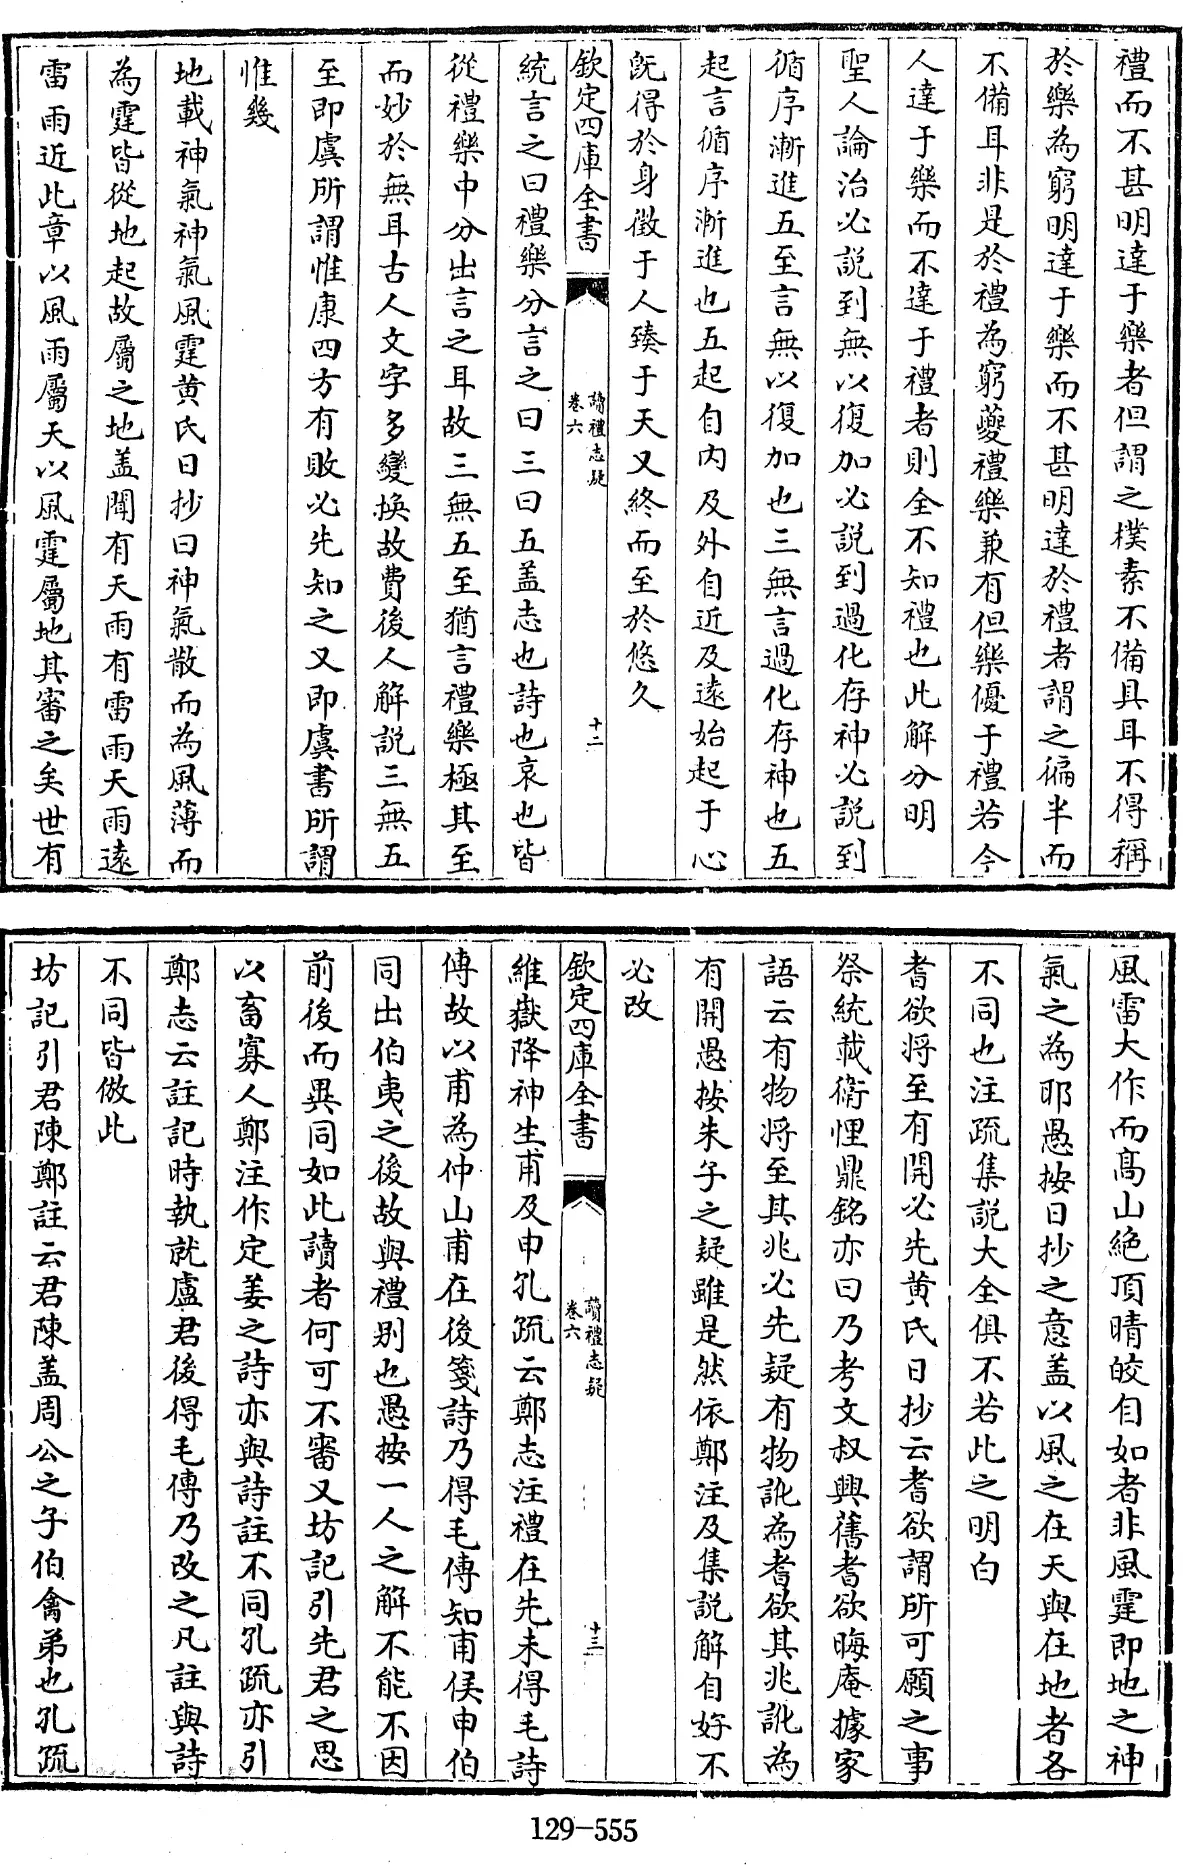 禮而不甚明達于樂者但謂之樸素不備具耳不得稱
於樂為窮明達于樂而不甚明達於禮者謂之徧半而
不備耳非是於禮為窮夔禮樂兼有但樂優于禮若今
人達于樂而不達于禮者則全不知禮也此解分明
聖人論治必説到無以復加必説到過化存神必説到
循序漸進五至言無以復加也三無言過化存神也五
起言循序漸進也五起自内及外自近及遠始起于心
既得於身徴于人臻于天又終而至於悠久
欽定四庫全書
讀禮志疑
卷六
十二
統言之曰禮樂分言之曰三曰五盖志也詩也哀也皆
從禮樂中分出言之耳故三無五至猶言禮樂極其至
而妙於無耳古人文字多變换故費後人解説三無五
至即虞所謂惟康四方有敗必先知之又即虞書所謂
惟幾
地載神氣神氣風霆黄氏日抄曰神氣散而為風薄而
為霆皆從地起故屬之地盖聞有天雨有雷雨天雨遠
雷雨近此章以風雨屬天以風霆屬地其審之矣世有
風雷大作而髙山絶頂晴皎自如者非風霆即地之神
氣之為耶愚按日抄之意盖以風之在天與在地者各
不同也注疏集説大全俱不若此之明白
耆欲将至有開必先黄氏日抄云耆欲謂所可願之事
祭統載衛悝鼎銘亦曰乃考文叔興舊耆欲晦庵據家
語云有物将至其兆必先疑有物訛為耆欲其兆訛為
有開愚按朱子之疑雖是然依鄭注及集説解自好不
必改
欽定四庫全書
讀禮志疑
卷六
十三
維嶽降神生甫及申孔疏云鄭志注禮在先未得毛詩
傳故以甫為仲山甫在後箋詩乃得毛傳知甫侯申伯
同出伯夷之後故與禮别也愚按一人之解不能不因
前後而異同如此讀者何可不審又坊記引先君之思
以畜寡人鄭注作定姜之詩亦與詩註不同孔疏亦引
鄭志云註記時執就盧君後得毛傳乃改之凡註與詩
不同皆倣此
坊記引君陳鄭註云君陳盖周公之子伯禽弟也孔疏
129-555